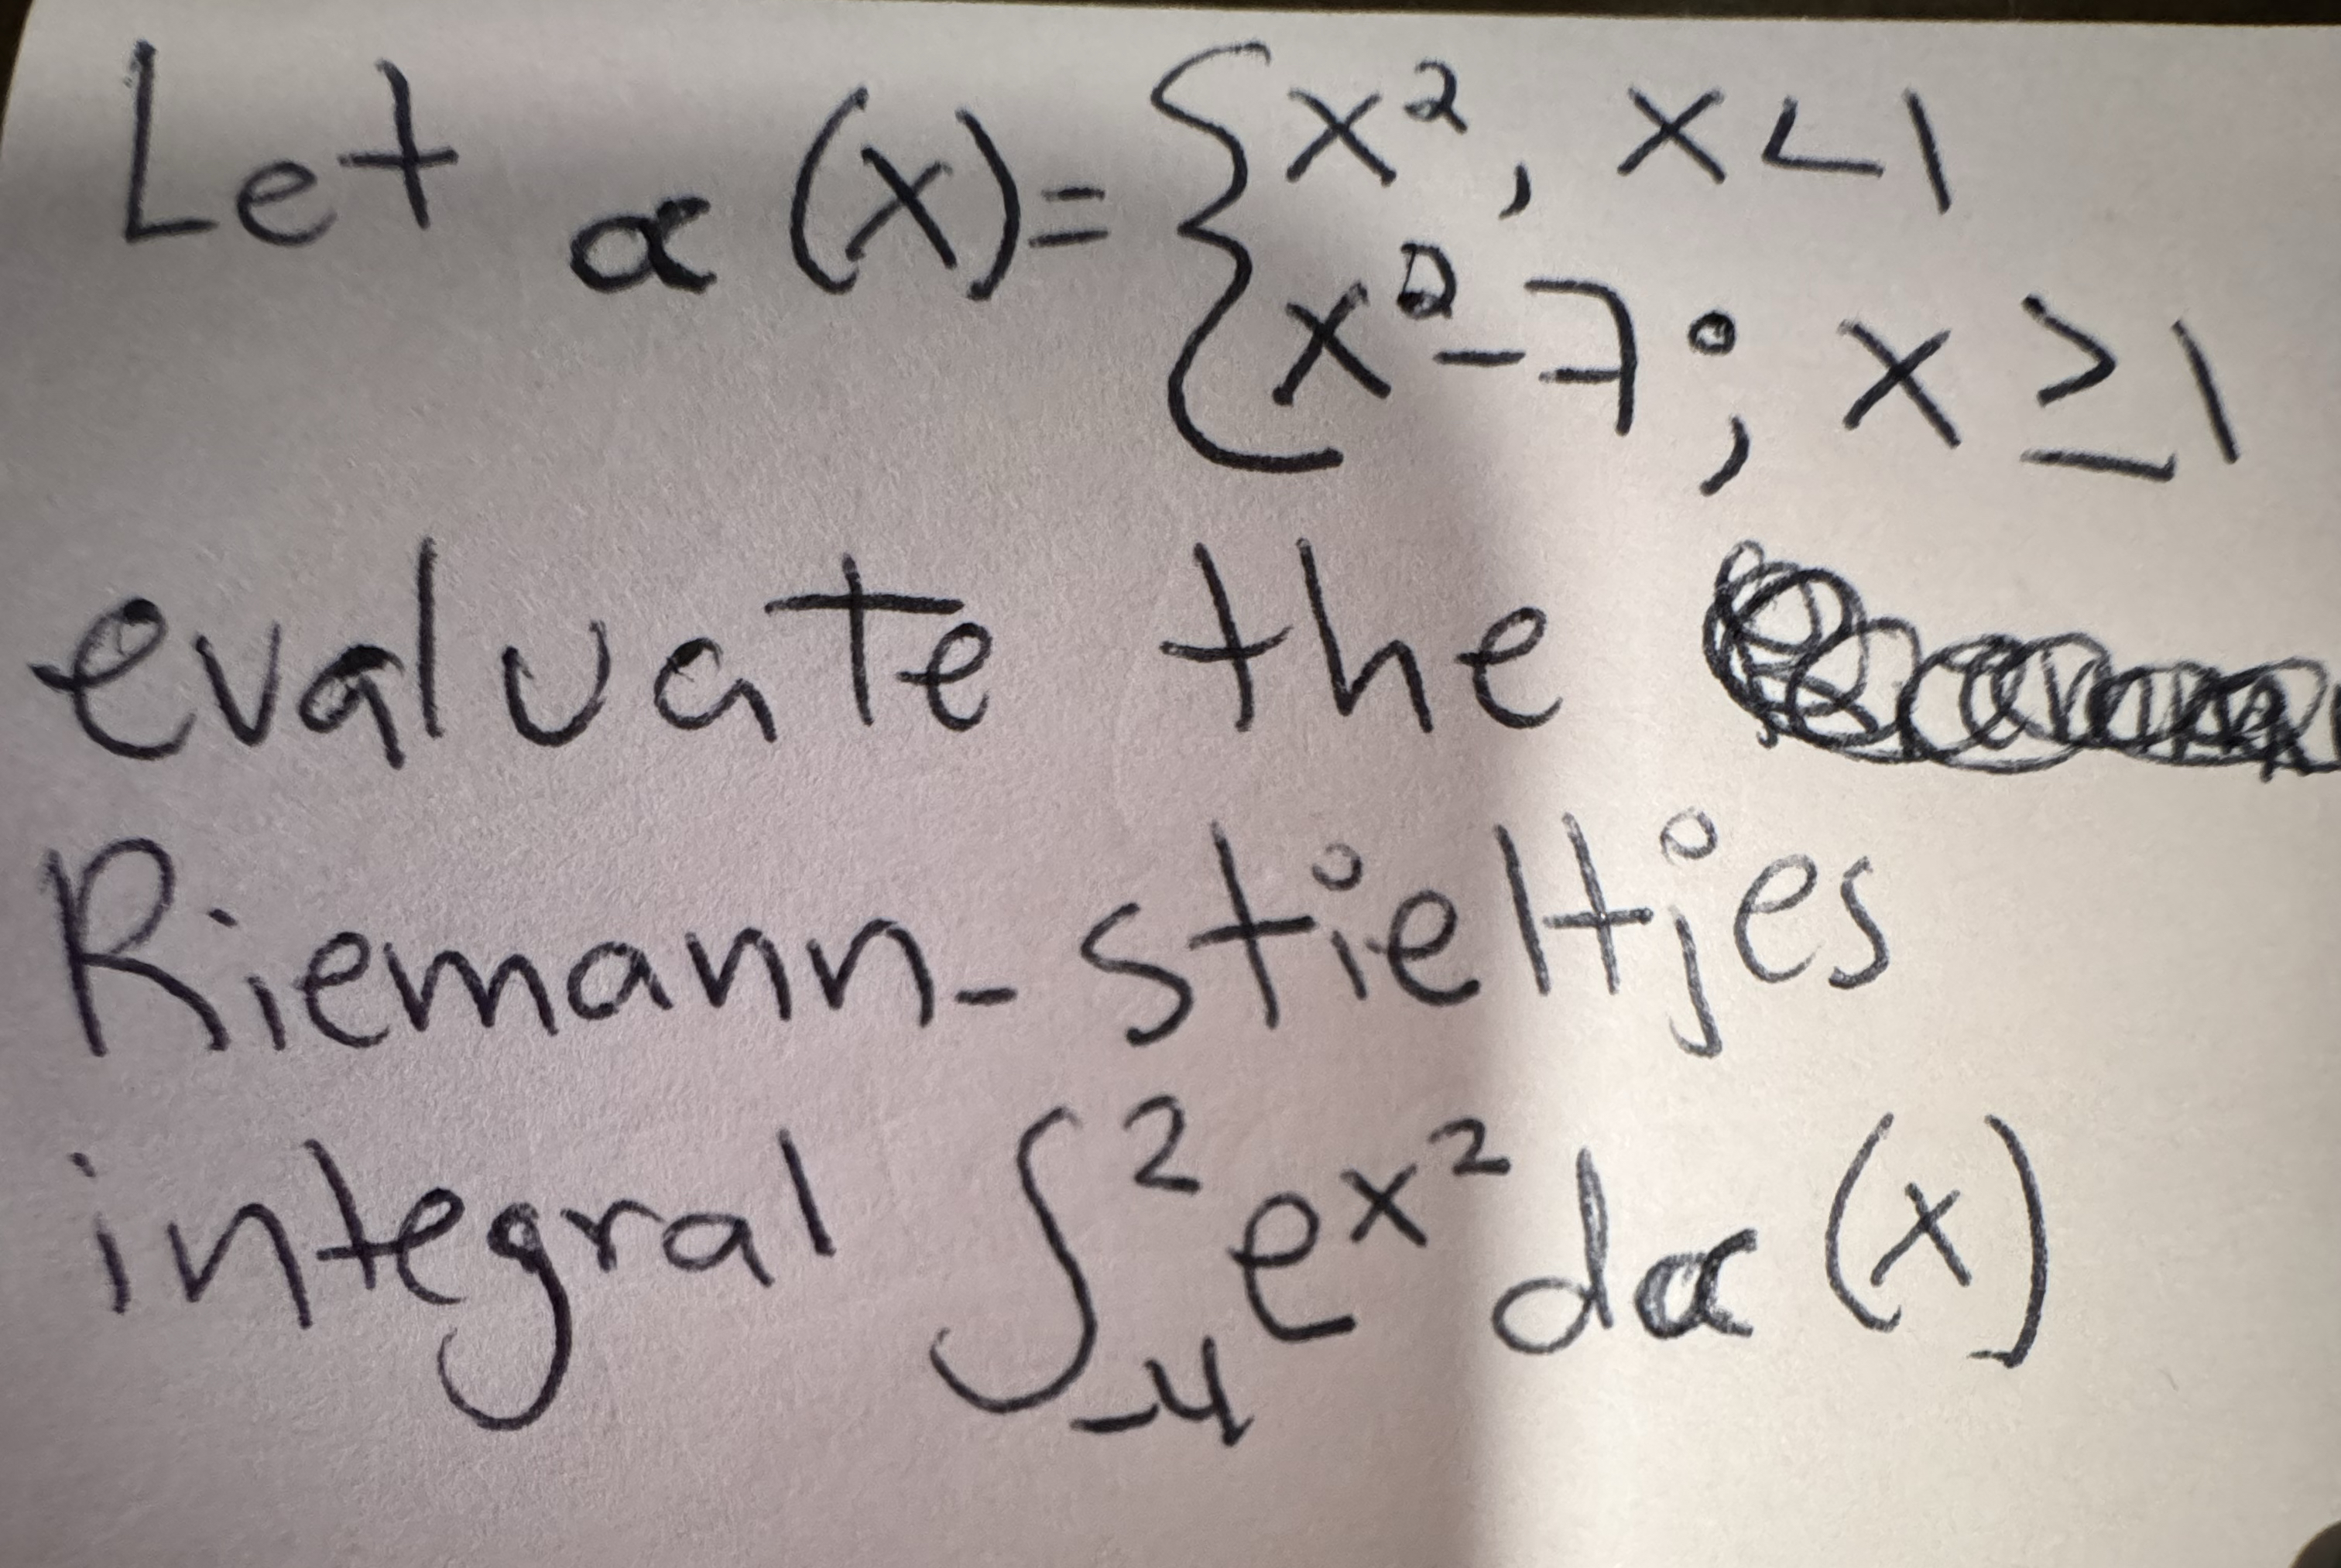 Let α(x)={x², x<1
{x²-7; x≥1
evaluate the
Riemann-stieltjes
integral ∫₋₄² eˣ² dα(x)